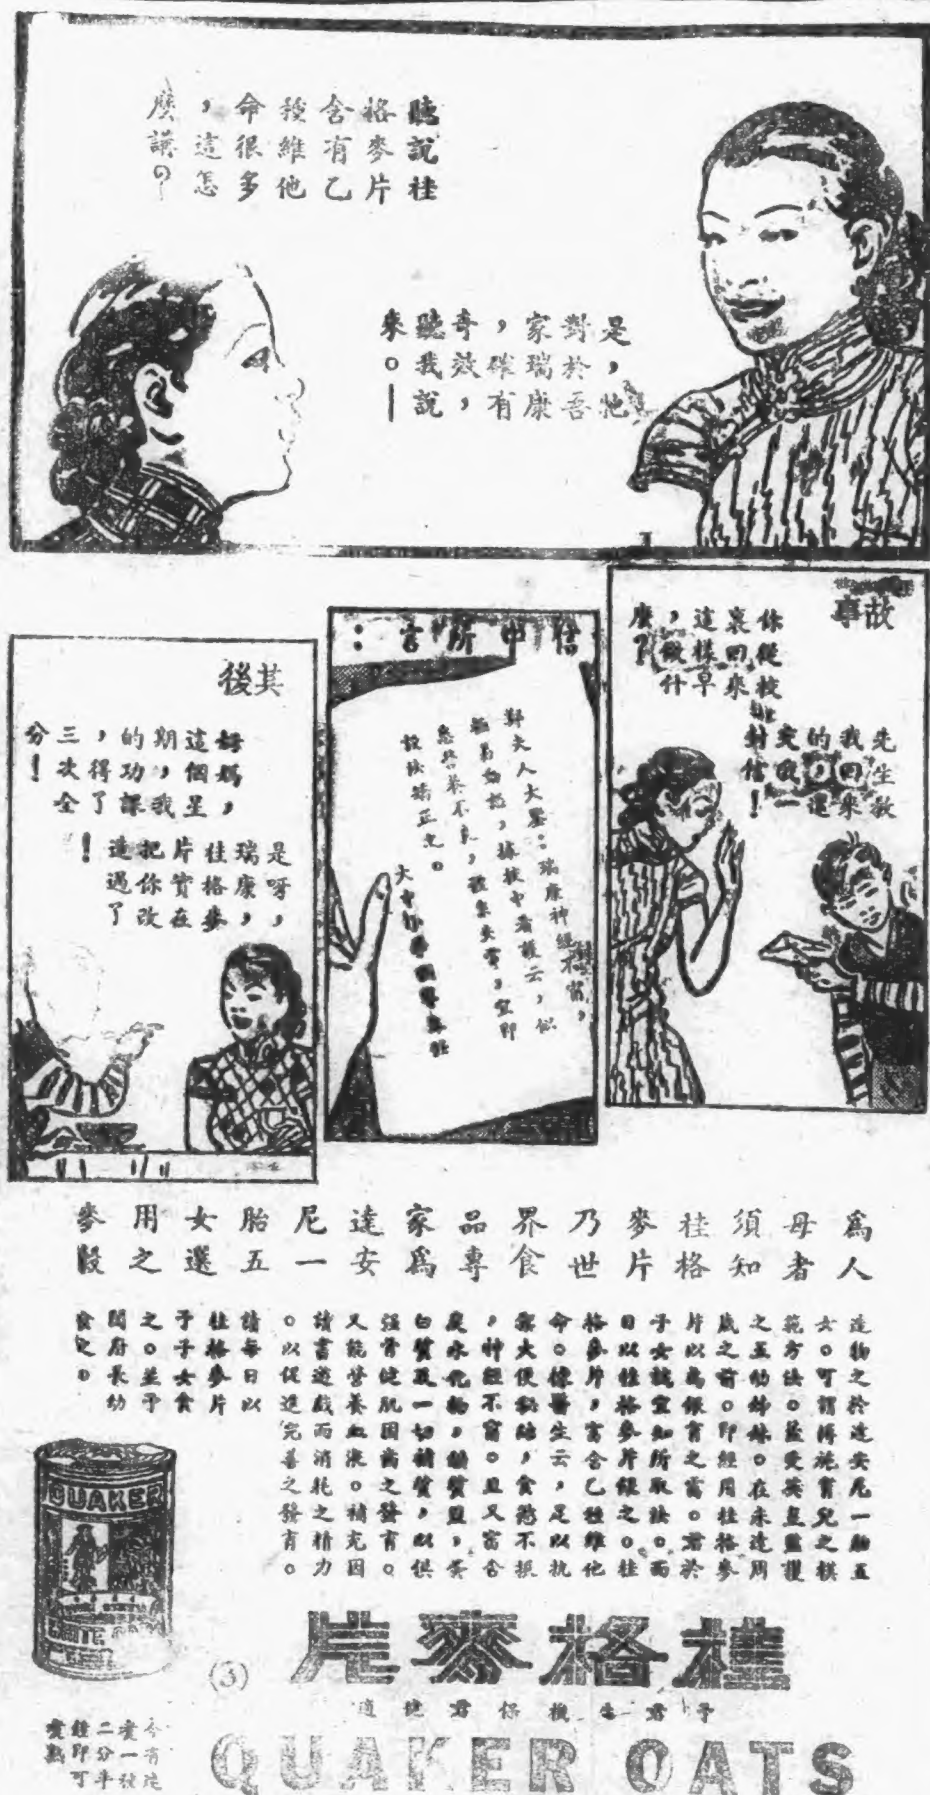 聽說桂
格麥片
含有乙
種維他
命很多
，這怎
麼講？
是，牠
對於吾
家瑞康
，確有
奇效，
聽我說
來。—
故事
你從校
裏回來
這樣早
，做什
麼？
先生教
我回來
的，還
交我一
封信！
信中所言：
鄭夫人大鑒：瑞康神經不甯，
極易動怒，據校中看護云，似
患營養不良，體氣失常，望即
設法矯正之。
其後
媽媽，
這個星
期，我
的功課
，得了
三次全
分！
是呀，
瑞康，
桂格麥
片實在
把你改
造過了
！
爲人
母者
須知
桂格
麥片
乃世
界食
品專
家爲
達安
尼一
胎五
女選
用之
麥穀
造物之於達安尼一胎五
女。可謂得施育兒之模
範方法。蓋受英皇監護
之五幼姊妹。在未達周
歲之前。即經用桂格麥
片以爲保育之需。君於
子女誠宜知所取法。而
日以桂格麥片餵之。桂
格麥片，富含乙種維他
命。據醫生云，足以抗
禦大便秘結，食慾不振
，神經不甯。且又富含
炭水化物，鐵質鹽，蛋
白質及一切補質，以供
强骨健肌固齒之發育。
又能營養血液。補充因
讀書遊戲而消耗之精力
。以促進完善之發育。
請每日以
桂格麥片
予子女食
之。並予
閤府長幼
食之。
QUAKER
桂格麥片
(3)
QUAKER OATS
今有速
煮一種
二分半
鐘即可
煮熟